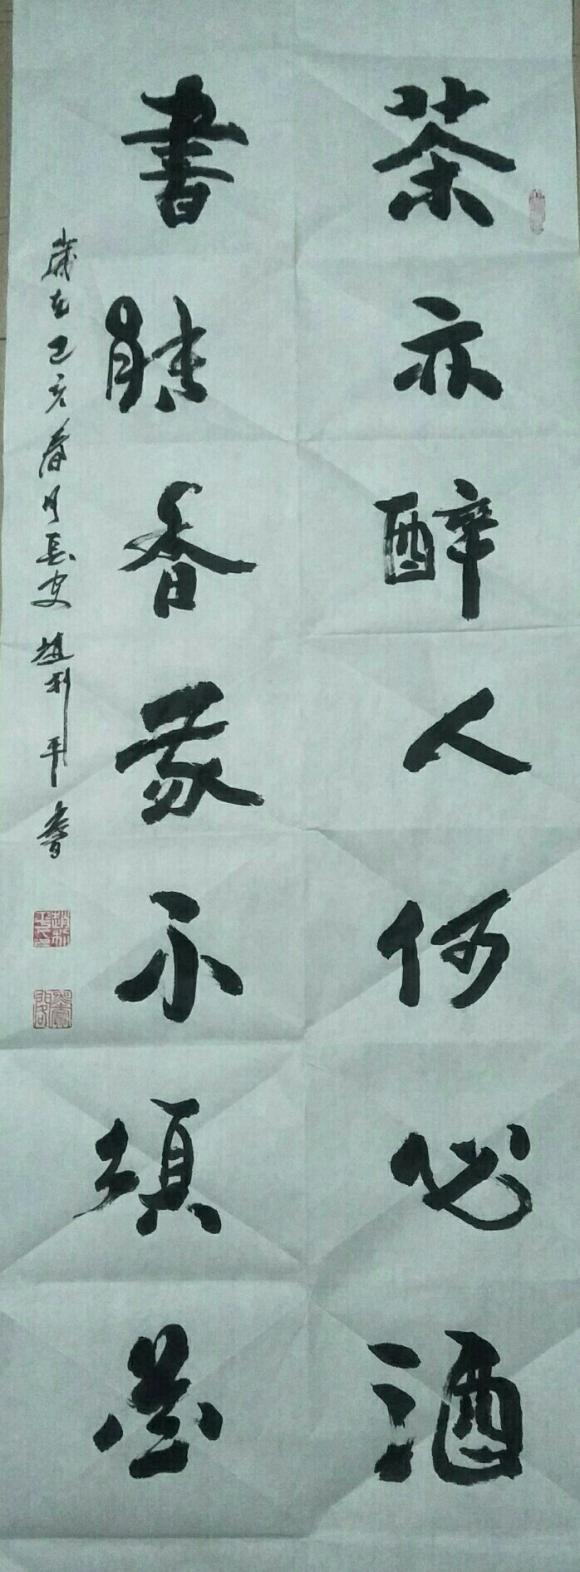 茶亦醉人何必酒
書能香我不須花
歲在己亥春月長安趙利平書